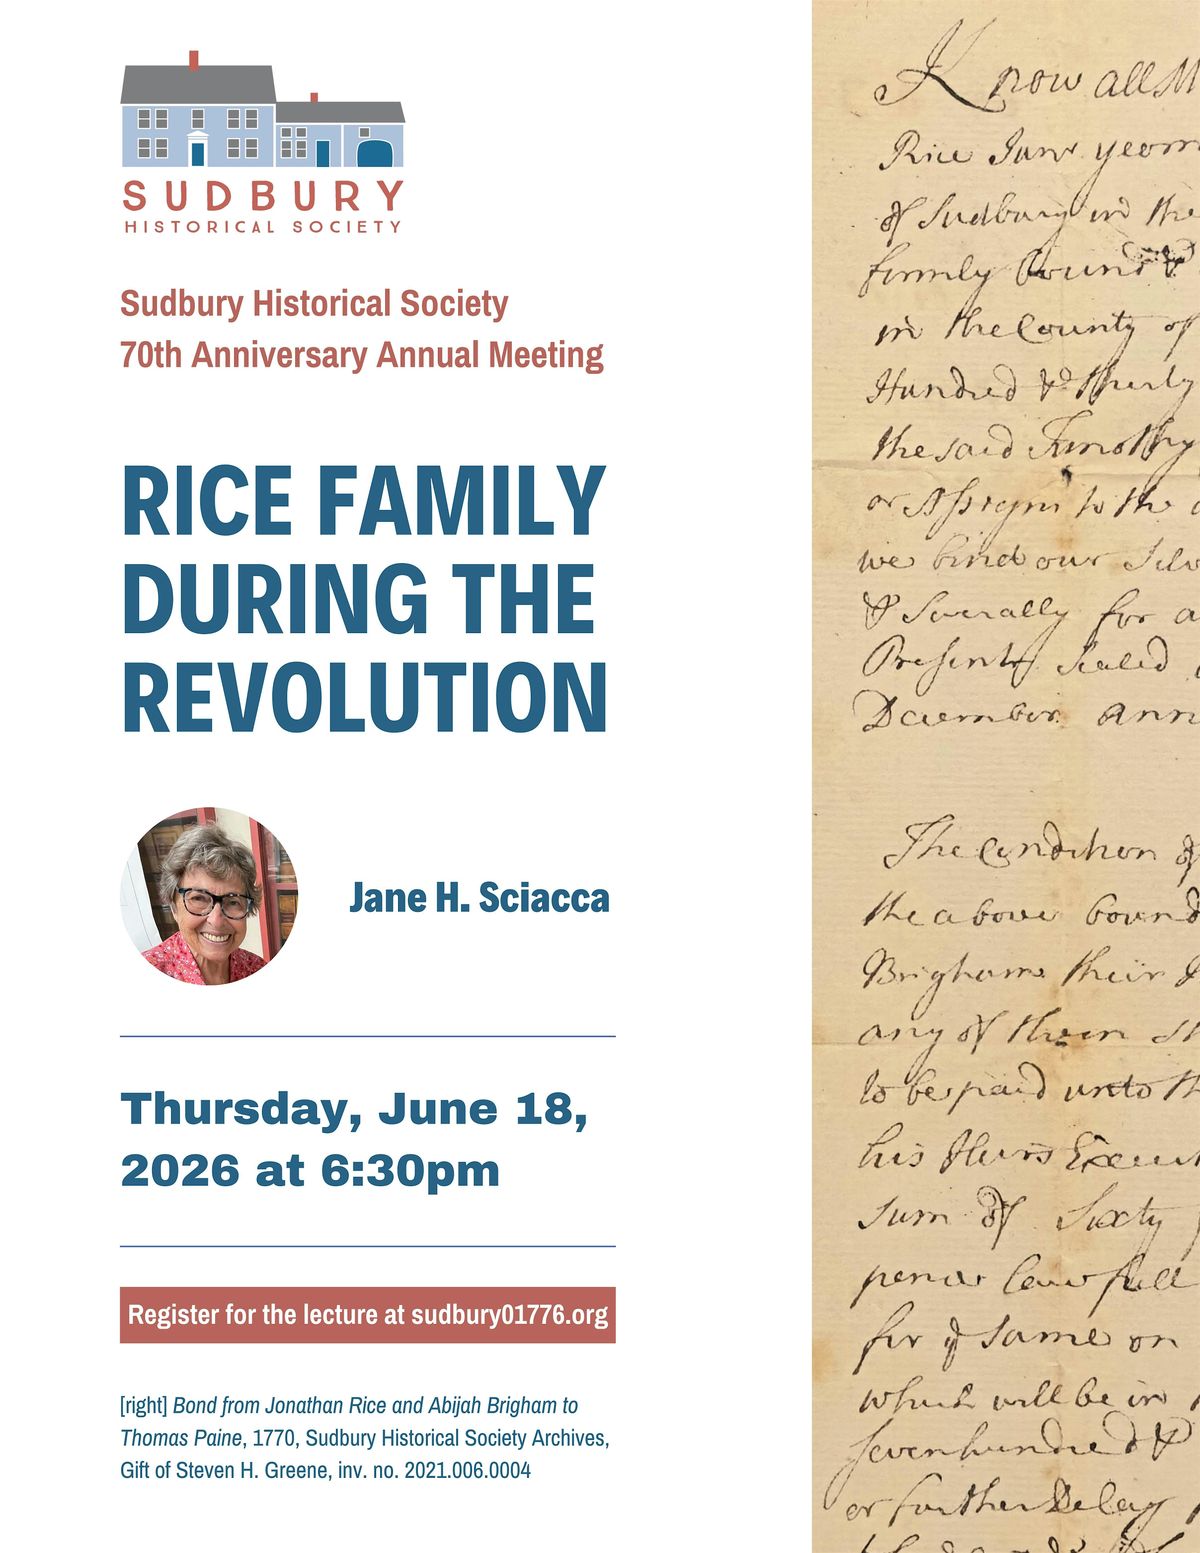 SUDBURY
HISTORICAL SOCIETY
Sudbury Historical Society
70th Anniversary Annual Meeting
RICE FAMILY
DURING THE
REVOLUTION
Jane H. Sciacca
Thursday, June 18,
2026 at 6:30pm
Register for the lecture at sudbury01776.org
[right] Bond from Jonathan Rice and Abijah Brigham to
Thomas Paine, 1770, Sudbury Historical Society Archives,
Gift of Steven H. Greene, inv. no. 2021.006.0004
Know all M
Rice Junr yeom
of Sudbury in the
firmly bound &
in the County of
Hundred & thirty
the said Timothy
or Assigns to the
we bind our Selv
& Severally for a
Presents Sealed
December Ann
The Condition of
the above bound
Brigham their
any of them sh
to be paid unto th
his Heirs Execut
sum of Sixty
pence lawfull
for ye same on
which will be in
seven hundred &
or further Delay